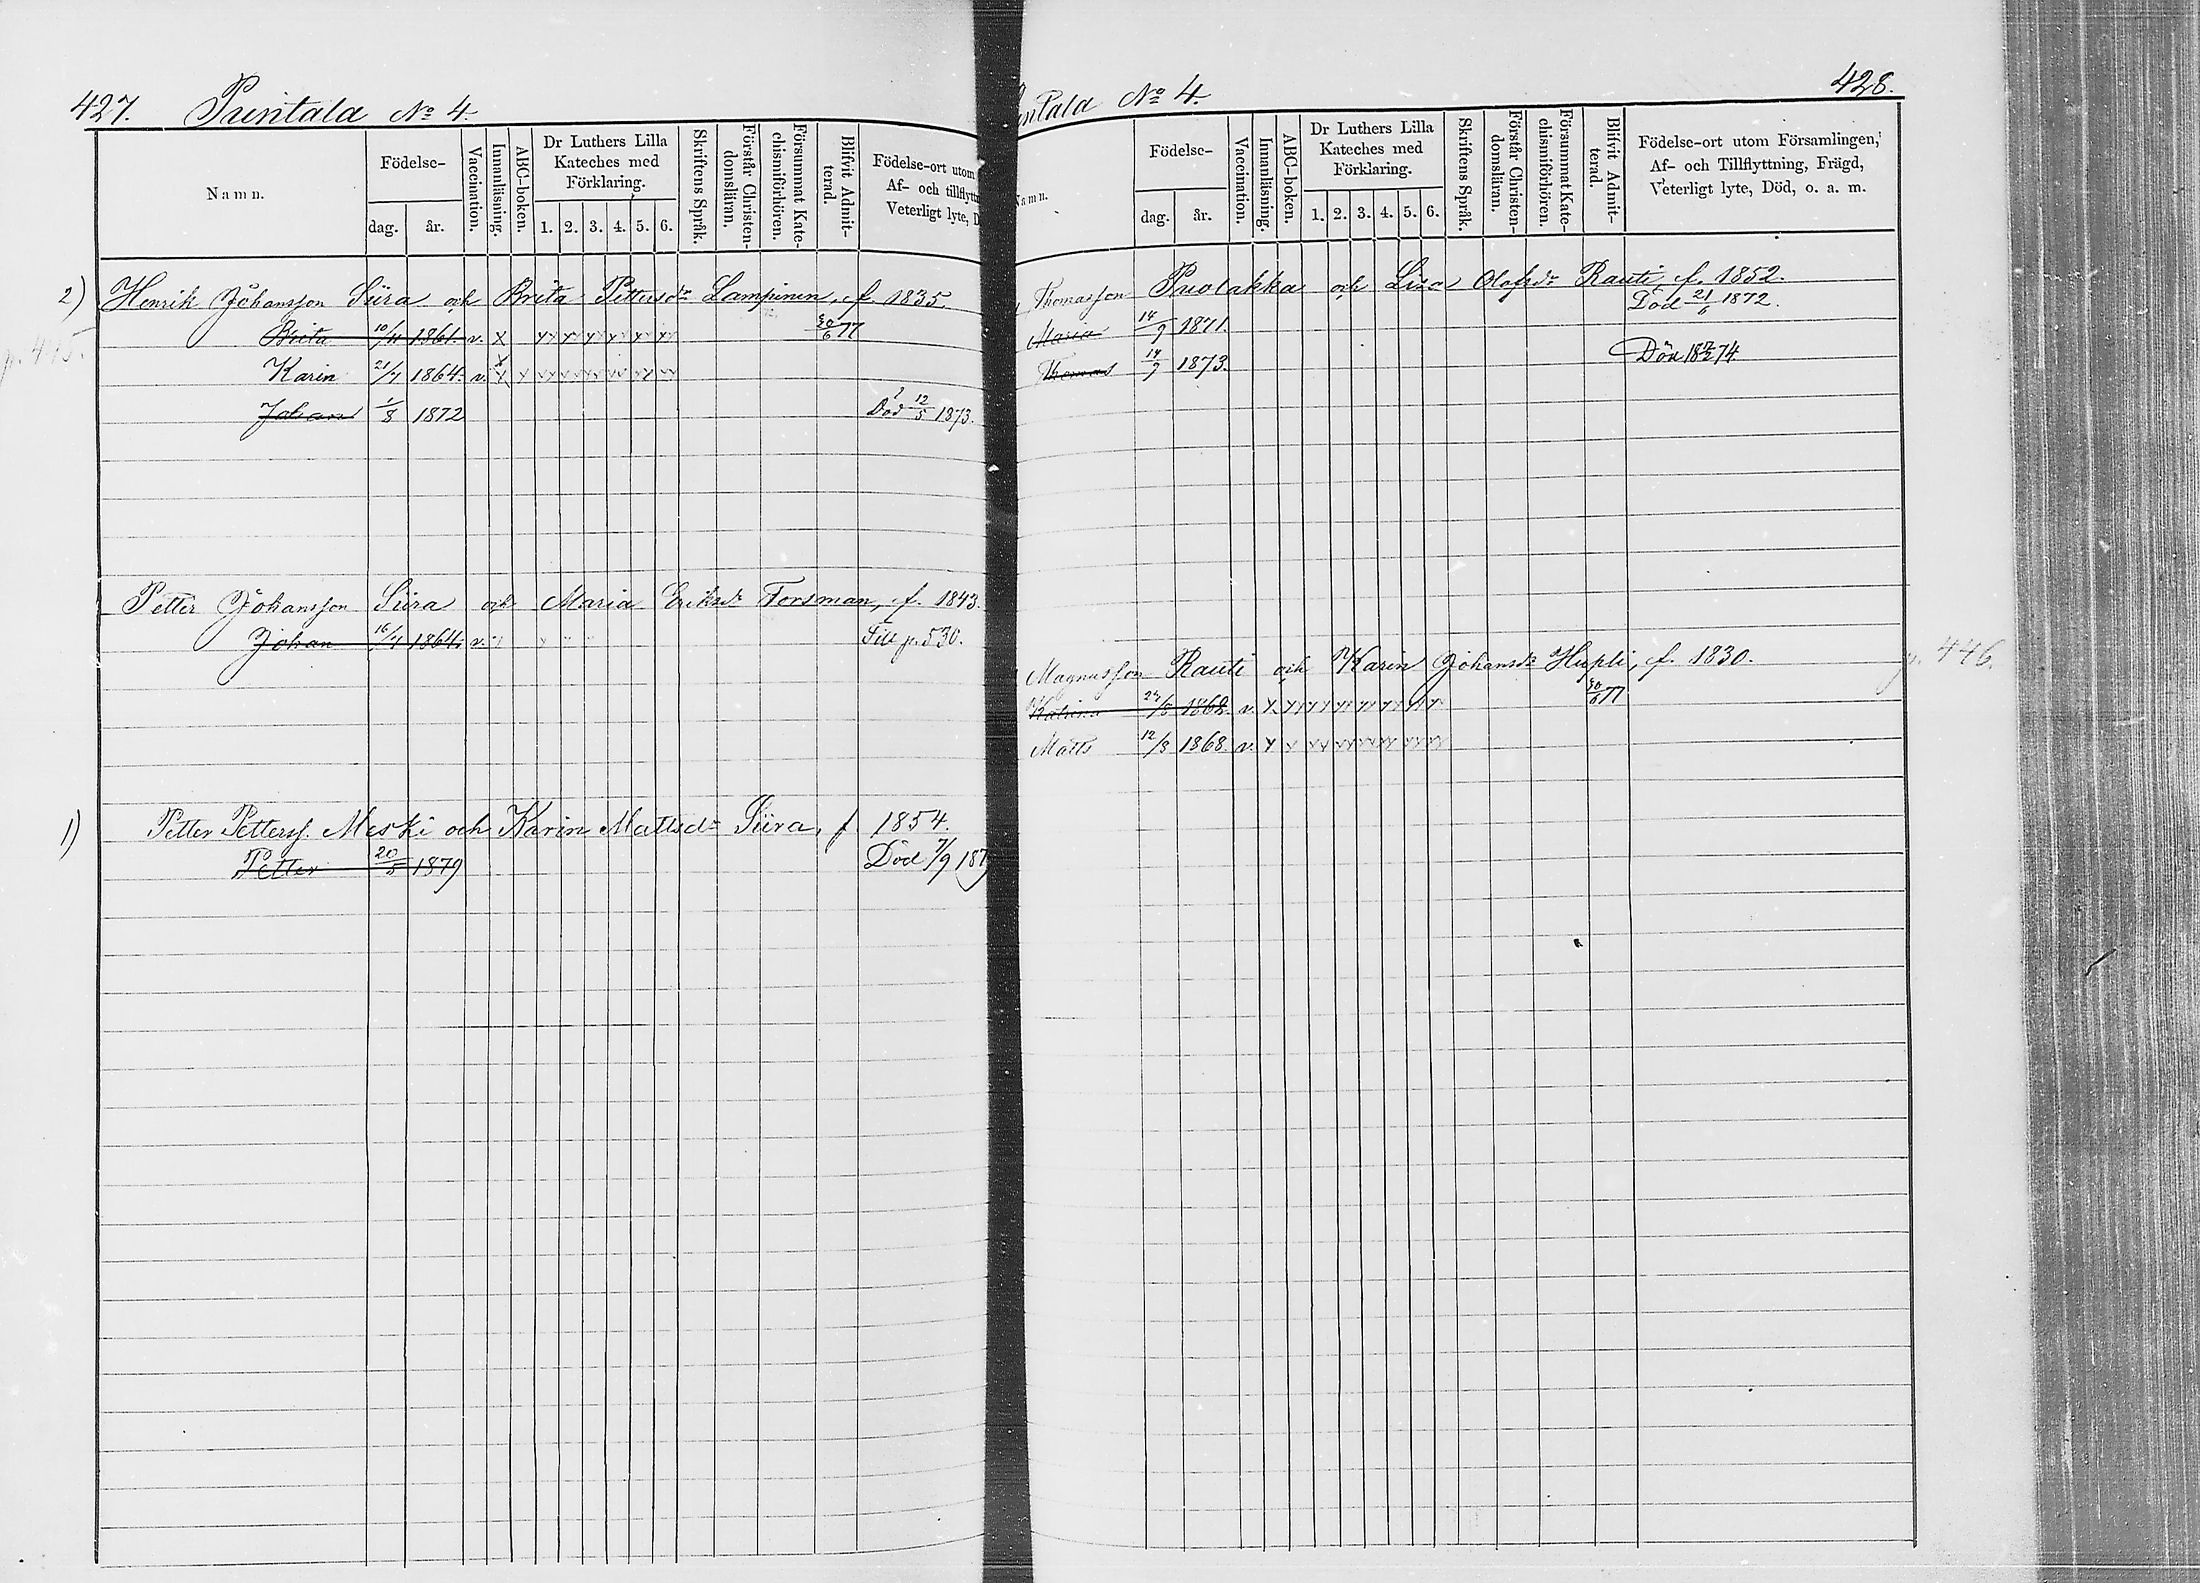 427. Puintala No 4.
Namn.
Födelse-
dag. år.
Vaccination.
Innanläsning.
ABC-boken.
Dr Luthers Lilla Kateches med Förklaring.
1. 2. 3. 4. 5. 6.
Skriftens Språk.
Förstår Christen-domsläran.
Försummat Kate-chismiförhören.
Blifvit Admit-terad.
Födelse-ort utom
Af- och tillflytt
Veterligt lyte, D
2) Henrik Johansson Siira och Brita Pettersdr Lampinen, f. 1835.
Brita 10/4 1861. v. x 30/6 77
p. 415.
Karin 21/4 1864. v.
Johan 1/8 1872 Död 12/5 1873.
Petter Johansson Siira och Maria Eriksdr Forsman, f. 1843.
Johan 16/4 1864. v. Till p. 530.
1) Petter Petterss. Meski och Karin Mattsdr Siira, f. 1854.
Petter 20/5 1879 Död 7/9 187
ntala No 4. 428.
Namn.
Födelse-
dag. år.
Vaccination.
Innanläsning.
ABC-boken.
Dr Luthers Lilla Kateches med Förklaring.
1. 2. 3. 4. 5. 6.
Skriftens Språk.
Förstår Christen-domsläran.
Försummat Kate-chismiförhören.
Blifvit Admit-terad.
Födelse-ort utom Församlingen,
Af- och Tillflyttning, Frägd,
Veterligt lyte, Död, o. a. m.
Thomasson Puolakka och Lisa Olofsdr Rauti, f. 1852.
Maria 14/9 1871. Död 21/6 1872.
Thomas 14/9 1873. Död 18 7/2 74
Magnusson Rauti och Karin Johansdr Hupli, f. 1830. p. 446.
Katrina 1862. v. 30/6 77
Matts 12/3 1868. v.